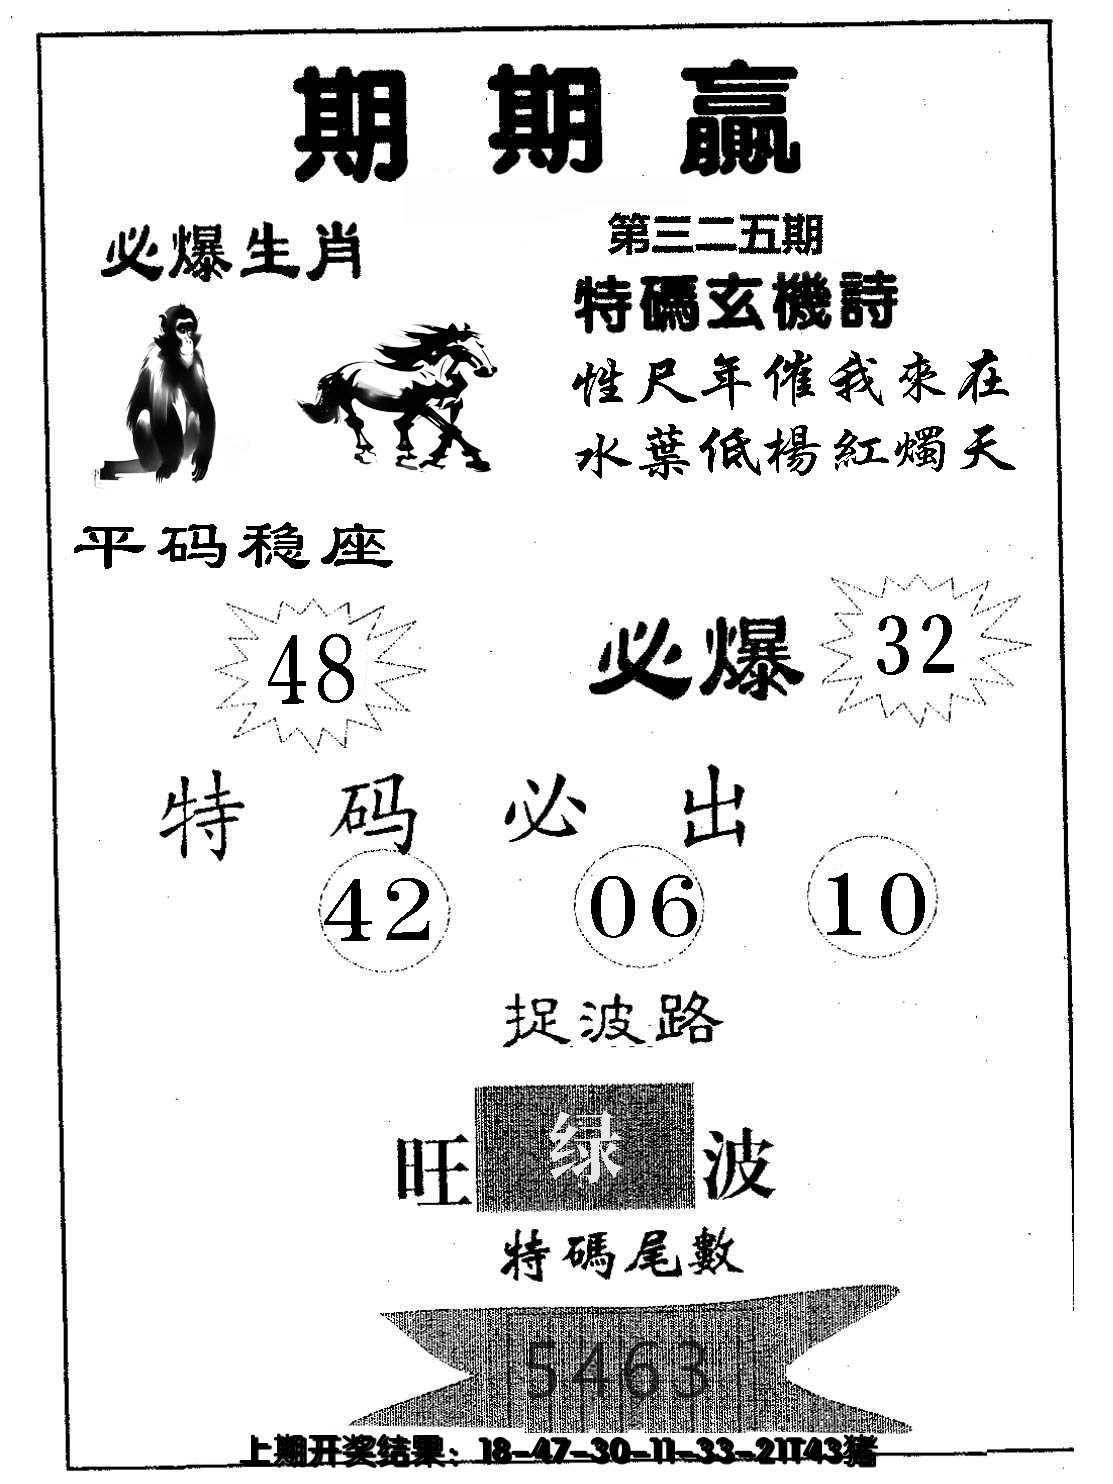 期期赢
第三二五期
必爆生肖
特碼玄機詩
性尺年催我來在
水葉低楊紅燭天
平码稳座
48
必爆 32
特码必出
42 06 10
捉波路
旺 绿 波
特碼尾數
5463
上期开奖结果：18-47-30-11-33-21T43猪